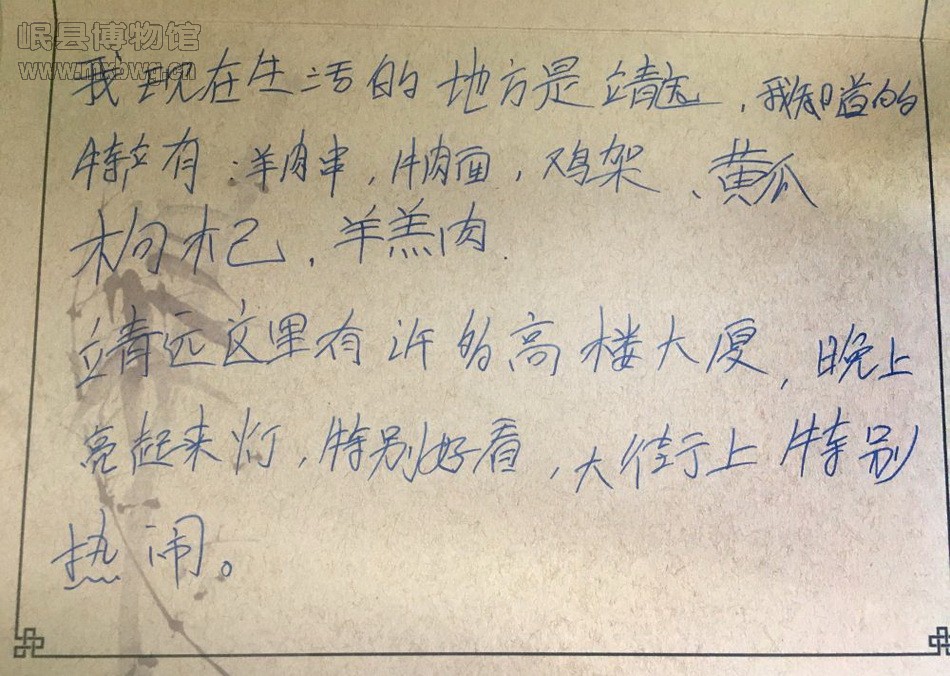 岷县博物馆
www.mxbwg.cn
我现在生活的地方是靖远,我知道的
特产有:羊肉串,牛肉面,鸡架、黄瓜
枸杞,羊羔肉.
靖远这里有许多高楼大厦,晚上
亮起来灯,特别好看,大街上特别
热闹。